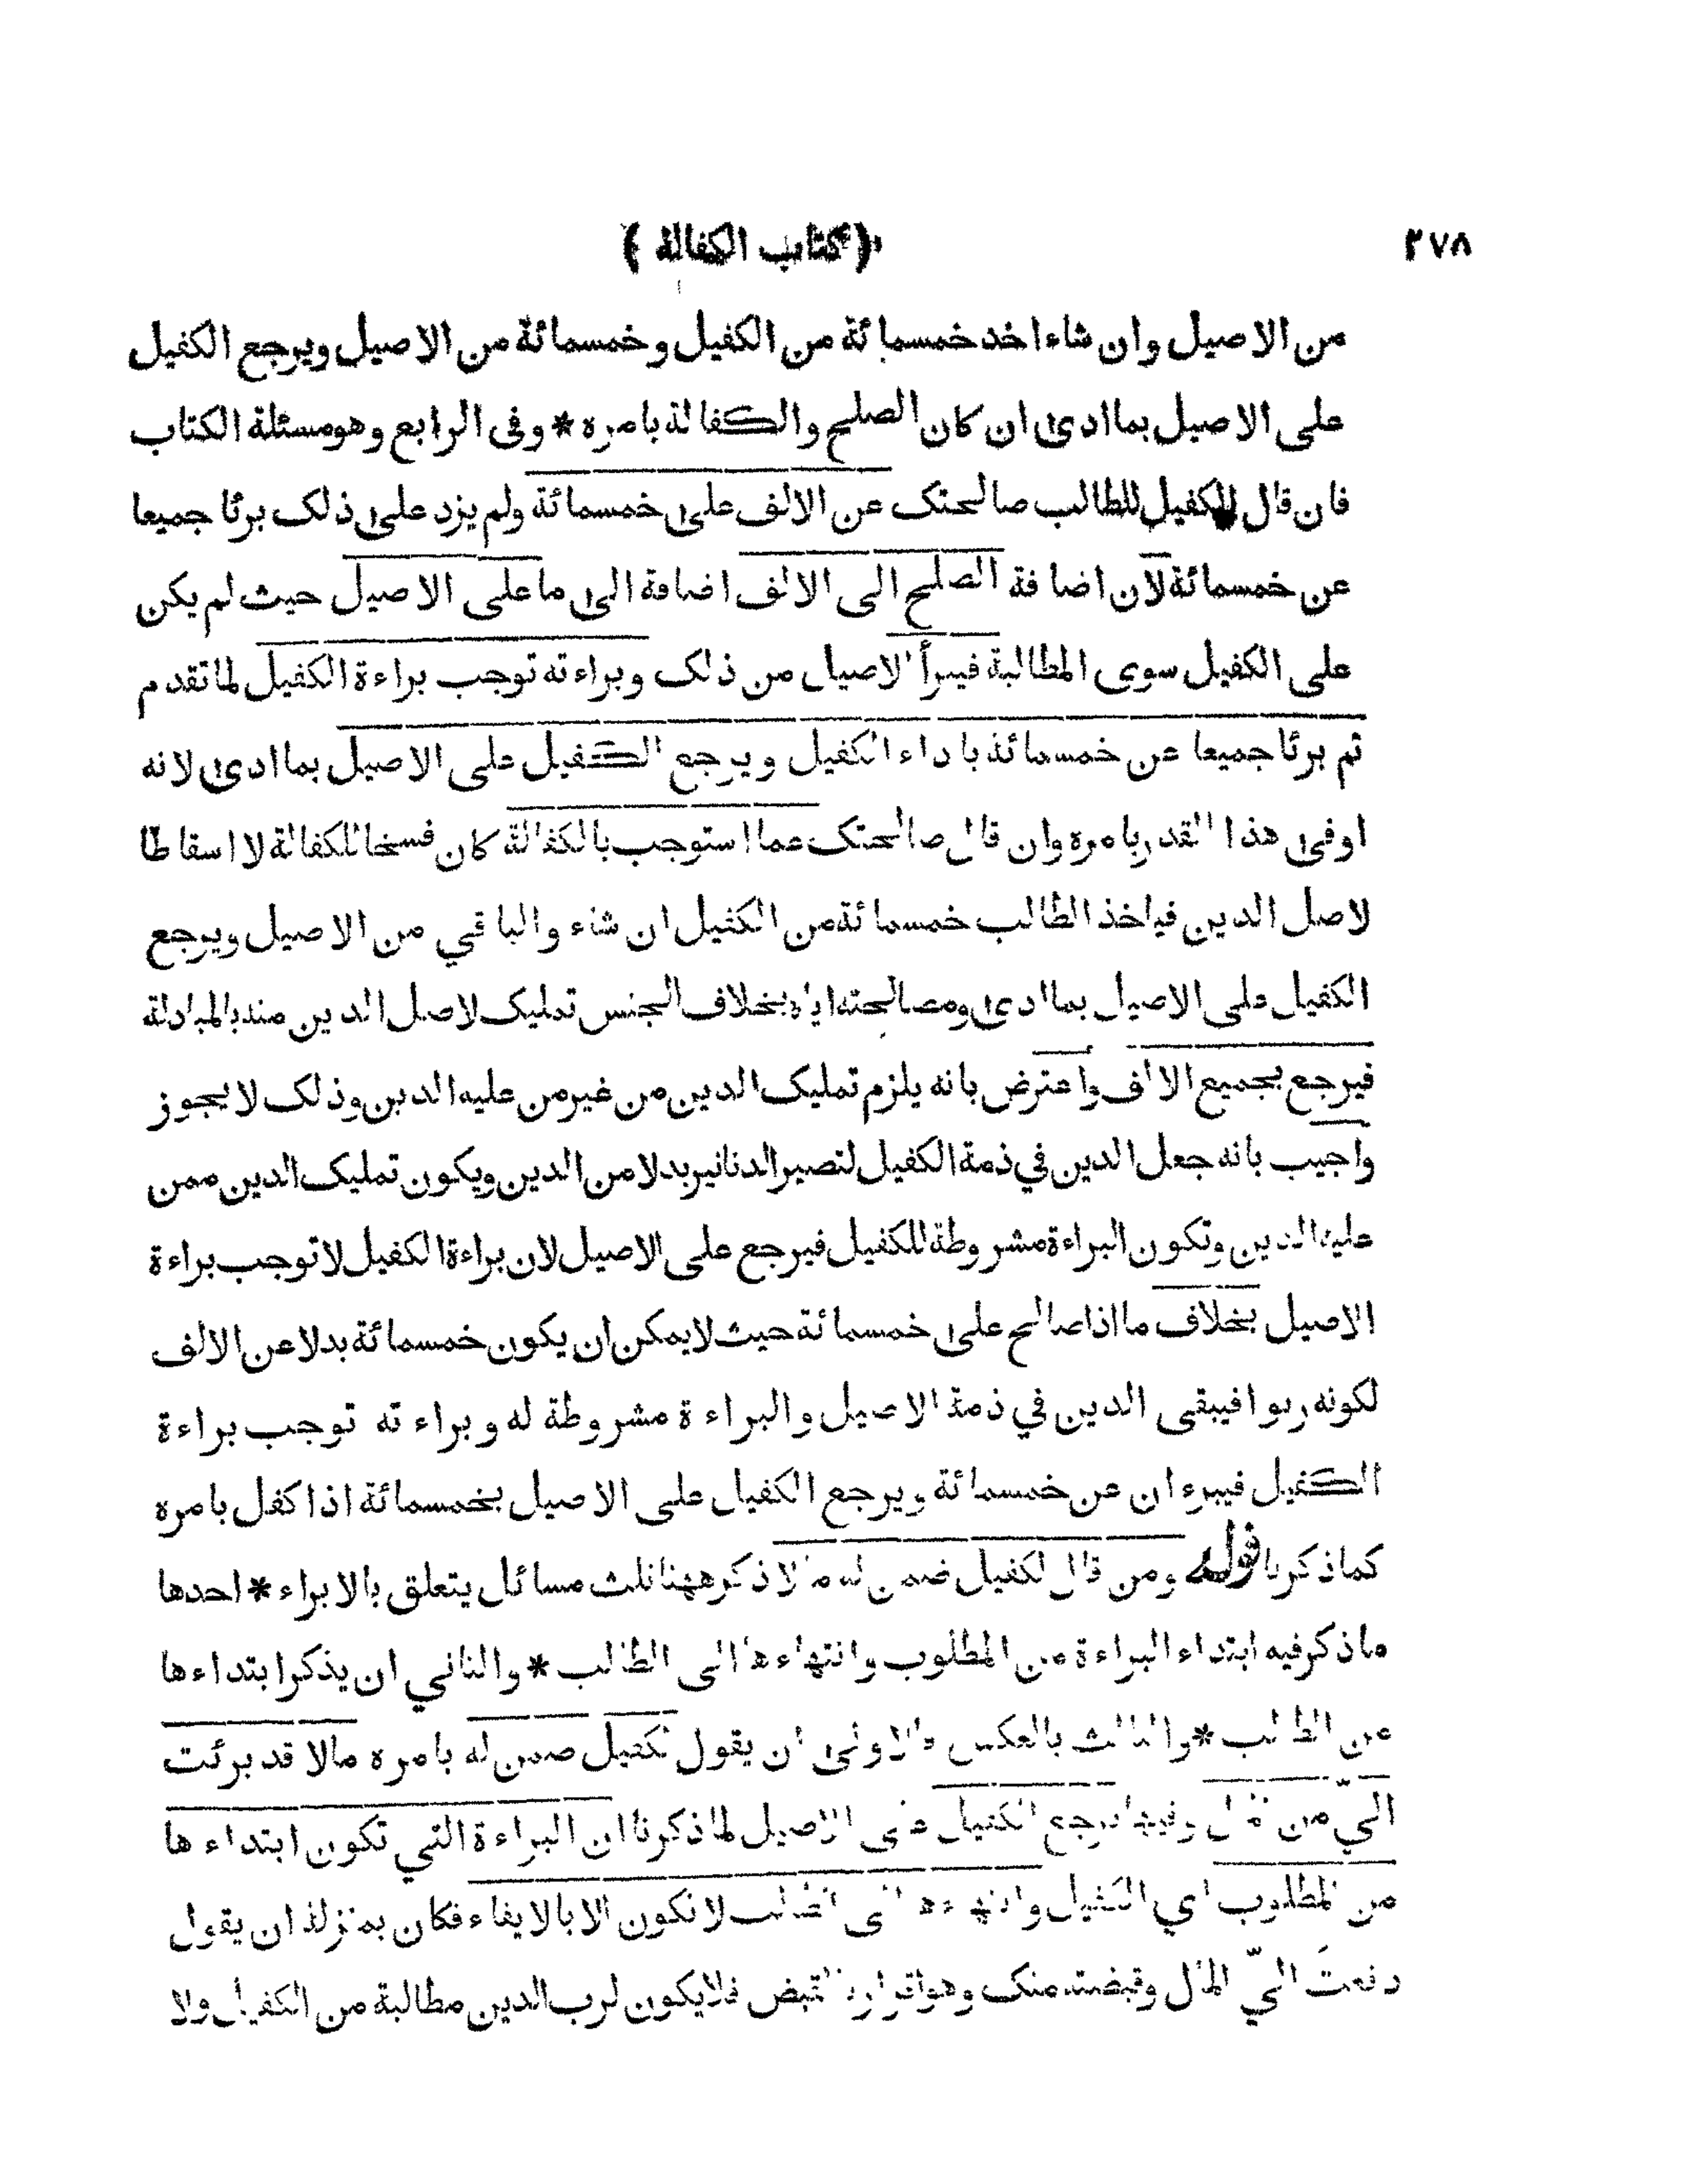 ٢٧٨ ( كتاب الكفالة )
من الاصيل وان شاء اخد خمسمائة من الكفيل وخمسمائة من الاصيل ويرجع الكفيل
على الاصيل بما ادى ان كان الصلح والكفالة بامره * وفى الرابع وهو مسئلة الكتاب
فان قال الكفيل للطالب صالحتك عن الالف على خمسمائة ولم يزد على ذلك برئا جميعا
عن خمسمائة لان اضافة الصلح الى الالف اضافة الى ما على الاصيل حيث لم يكن
على الكفيل سوى المطالبة فيبرأ الاصيل من ذلك وبراءته توجب براءة الكفيل لما تقدم
ثم برئا جميعا عن خمسمائة باداء الكفيل ويرجع الكفيل على الاصيل بما ادى لانه
اوفى هذا القدر بامره وان قال صالحتك عما استوجب بالكفالة كان فسخا للكفالة لا اسقاطا
لاصل الدين فياخذ الطالب خمسمائة من الكفيل ان شاء والباقي من الاصيل ويرجع
الكفيل على الاصيل بما ادى ومصالحته اياه بخلاف الجنس تمليك لاصل الدين منه بالمبادلة
فيرجع بجميع الالف واعترض بانه يلزم تمليك الدين من غير من عليه الدين وذلك لا يجوز
واجيب بانه جعل الدين في ذمة الكفيل لتصير الدنانير بدلا من الدين ويكون تمليك الدين ممن
عليه الدين وتكون البراءة مشروطة للكفيل فيرجع على الاصيل لان براءة الكفيل لا توجب براءة
الاصيل بخلاف ما اذا صالح على خمسمائة حيث لا يمكن ان يكون خمسمائة بدلا عن الالف
لكونه ربوا فيبقى الدين في ذمة الاصيل والبراءة مشروطة له وبراءته توجب براءة
الكفيل فيبرءان عن خمسمائة ويرجع الكفيل على الاصيل بخمسمائة اذا كفل بامره
كما ذكرنا قوله ومن قال لكفيل ضمن له مالا ذكر ههنا ثلث مسائل يتعلق بالابراء * احدها
ما ذكر فيه ابتداء البراءة من المطلوب وانتهاءها الى الطالب * والثاني ان يذكر ابتداءها
عن الطالب * والثالث بالعكس فالاولى ان يقول لكفيل ضمن له بامره مالا قد برئت
اليّ من المال وفيها يرجع الكفيل على الاصيل لما ذكرنا ان البراءة التي تكون ابتداءها
من المطلوب اي الكفيل وانتهاءها الى الطالب لا تكون الا بالايفاء فكان بمنزلة ان يقول
دفعتَ اليّ المال وقبضته منك وهو اقرار بالقبض فلا يكون لرب الدين مطالبة من الكفيل ولا